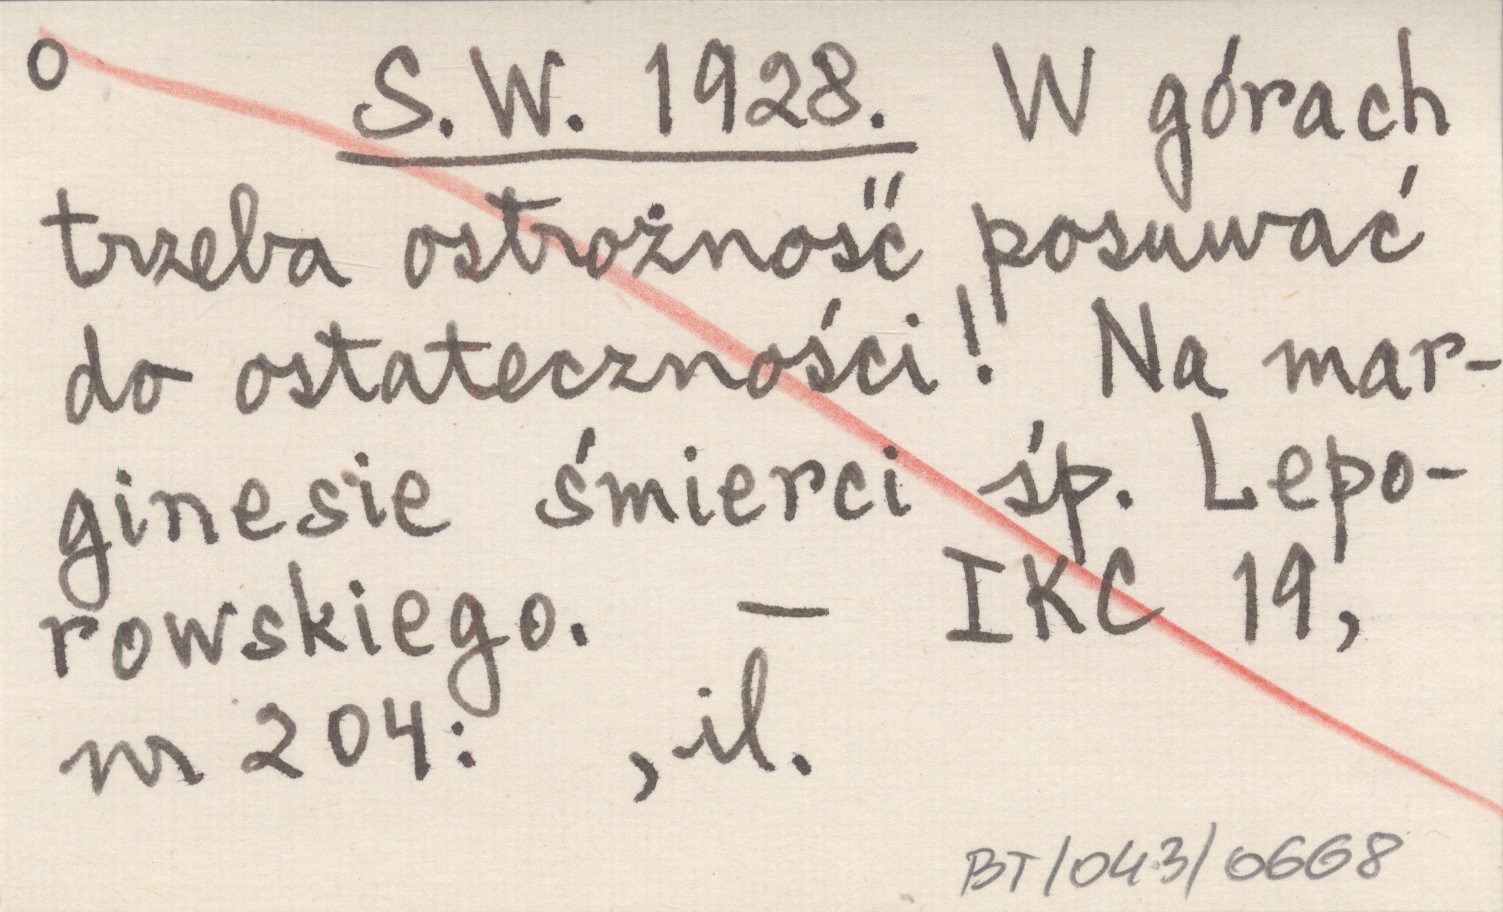 o S.W. 1928. W górach
trzeba ostrożność posuwać
do ostateczności! Na mar-
ginesie śmierci śp. Lepo-
rowskiego. — IKC 19,
nr 204: , il.
BT/043/0668